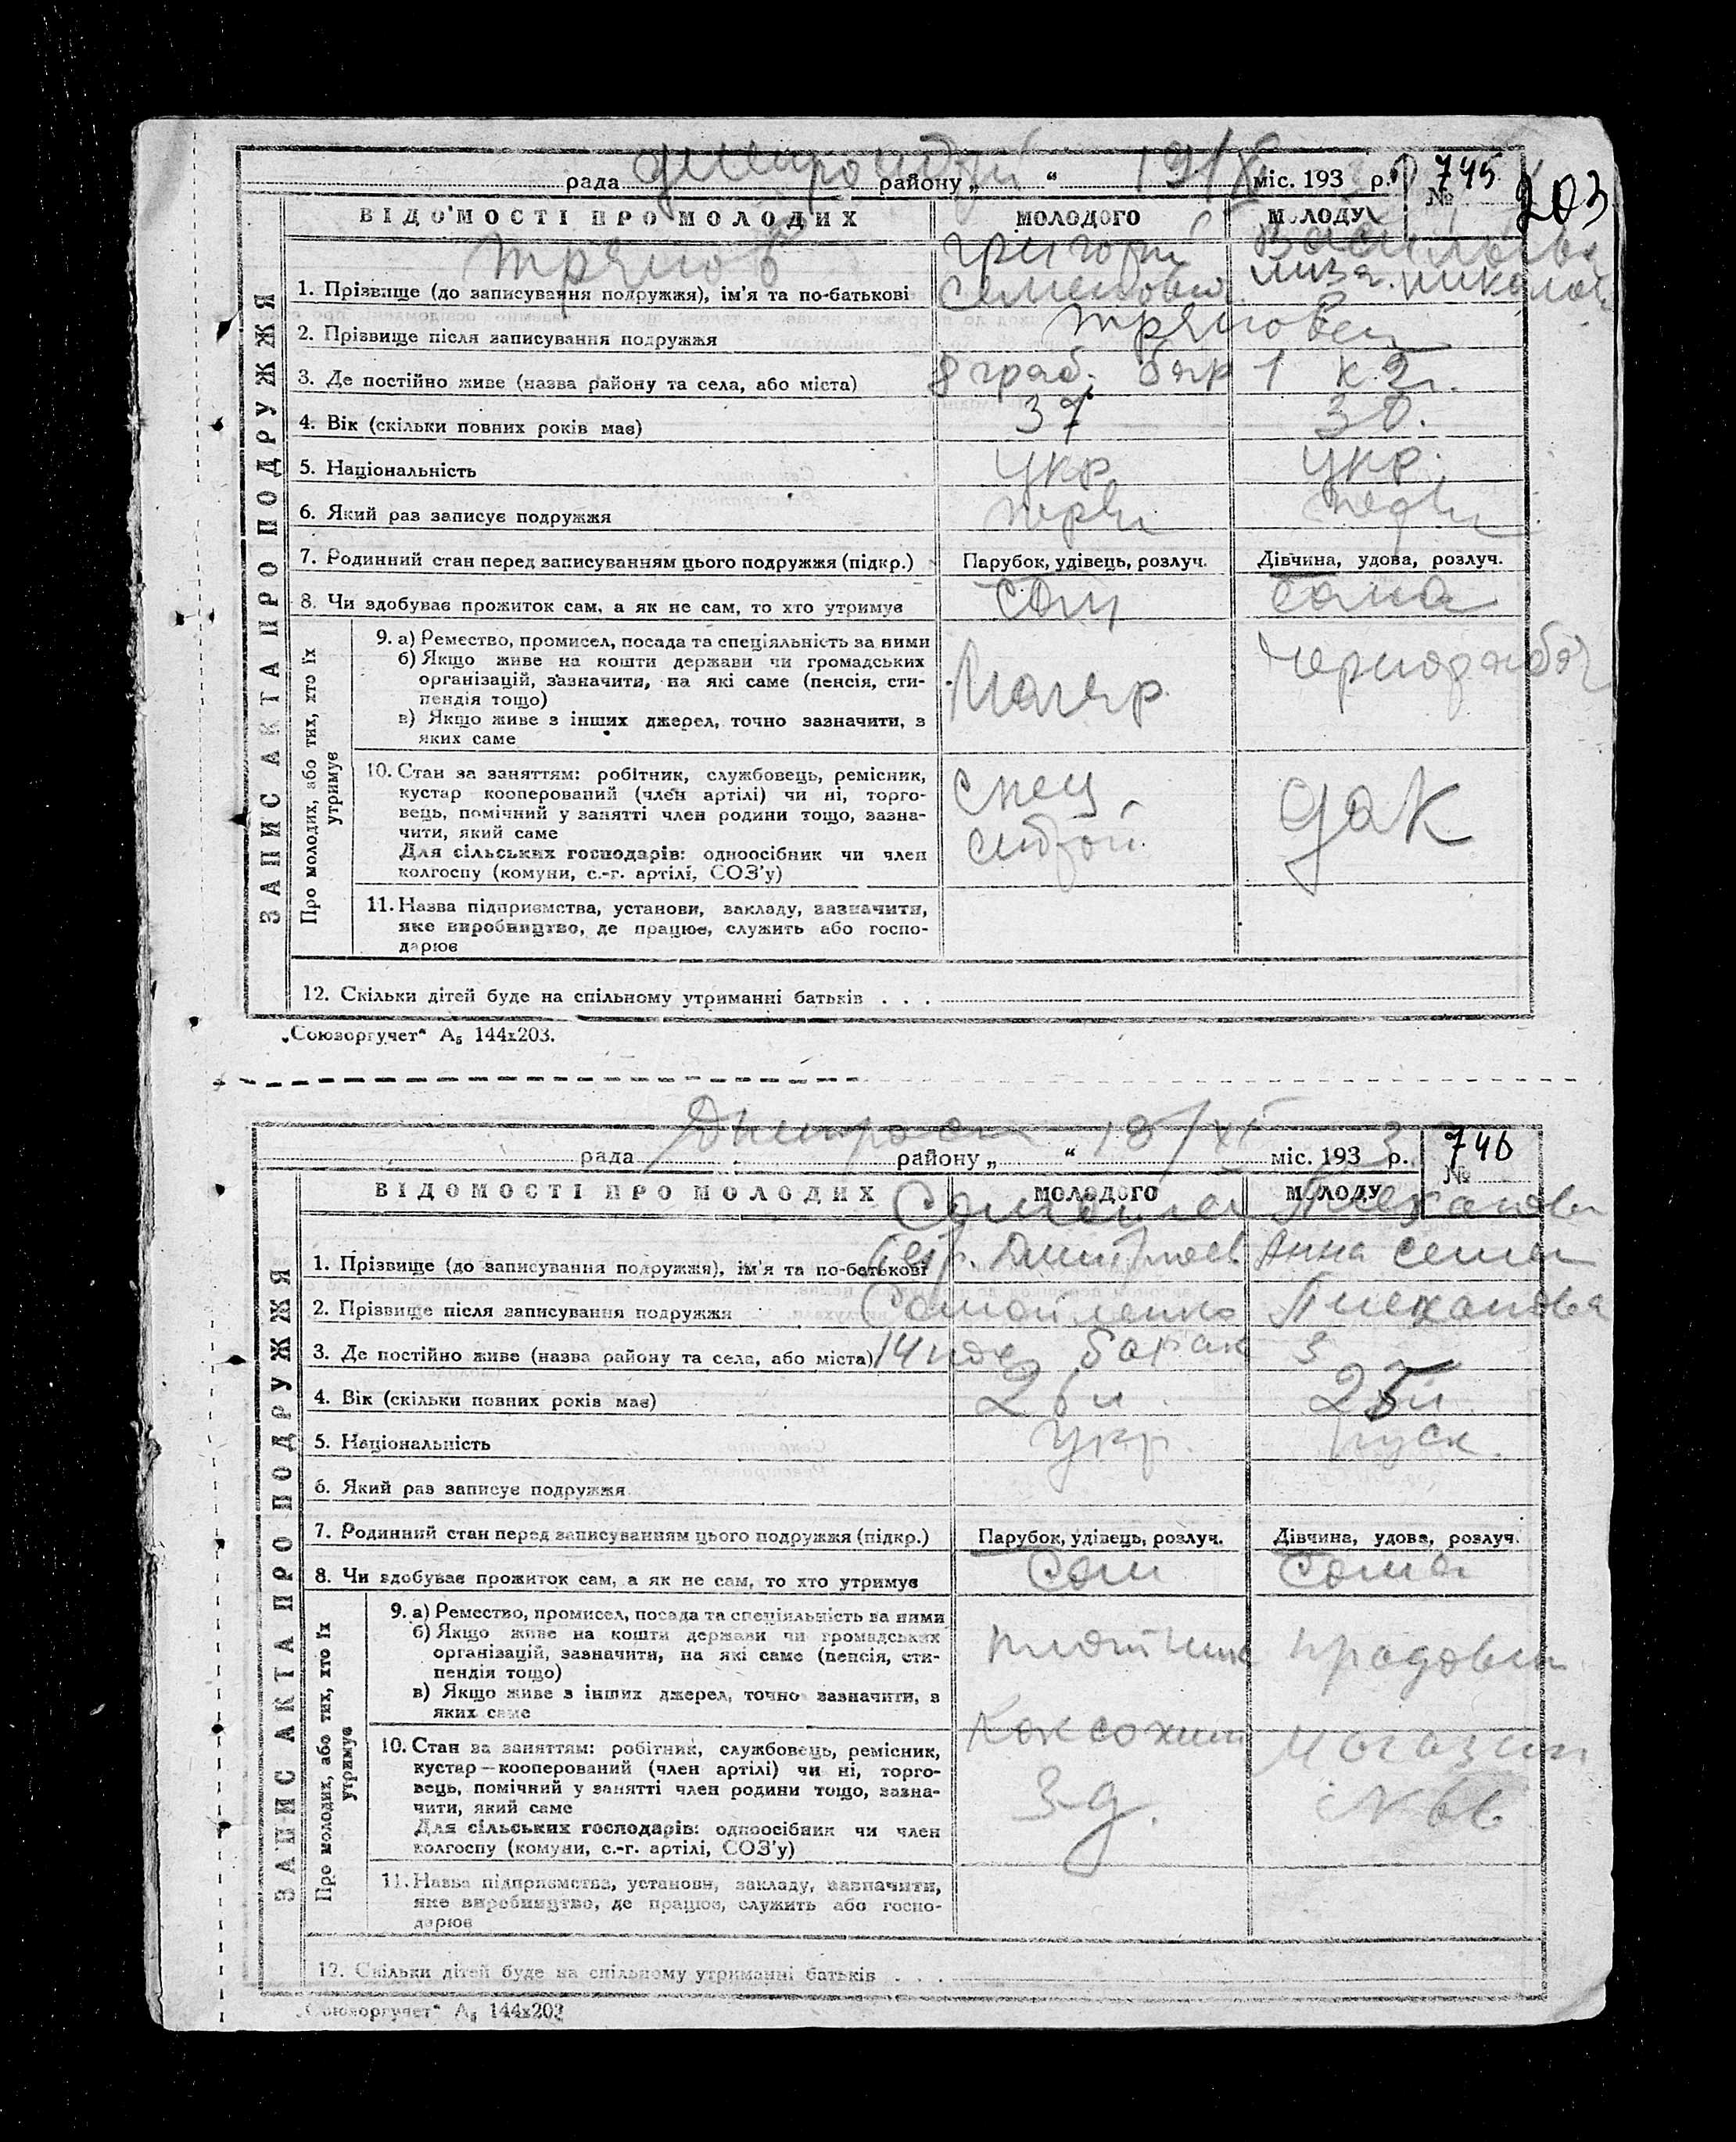 рада району „ “ 19/X міс. 193 р. № 745
203
ВІДОМОСТІ ПРО МОЛОДИХ МОЛОДОГО МОЛОДУ
1. Прізвище (до записування подружжя), ім'я та по-батькові Григорий Лиза
2. Прізвище після записування подружжя
3. Де постійно живе (назва району та села, або міста) 1 к 2
4. Вік (скільки повних років має) 37 30.
5. Національність укр укр.
6. Який раз записує подружжя
7. Родинний стан перед записуванням цього подружжя (підкр.) Парубок, удівець, розлуч. Дівчина, удова, розлуч.
8. Чи здобуває прожиток сам, а як не сам, то хто утримує сам сама
ЗАПИС АКТА ПРО ПОДРУЖЖЯ
Про молодих, або тих, хто їх утримує
9. а) Ремество, промисел, посада та спеціяльність за ними
б) Якщо живе на кошти держави чи громадських
організацій, зазначити, на які саме (пенсія, сти-
пендія тощо)
в) Якщо живе з інших джерел, точно зазначити, з
яких саме
маляр
10. Стан за заняттям: робітник, службовець, ремісник,
кустар кооперований (член артілі) чи ні, торго-
вець, помічний у занятті член родини тощо, зазна-
чити, який саме
Для сільських господарів: одноосібник чи член
колгоспу (комуни, с.-г. артілі, СОЗ'у)
спец
строй
11. Назва підприємства, установи, закладу, зазначити,
яке виробництво, де працює, служить або госпо-
дарює
12. Скільки дітей буде на спільному утриманні батьків . . .
„Союзоргучет“ А5 144х203.
рада району „ “ 18/XI міс. 193 3 р. № 746
ВІДОМОСТІ ПРО МОЛОДИХ МОЛОДОГО МОЛОДУ Плеханова
1. Прізвище (до записування подружжя), ім'я та по-батькові Дмитриев Анна Семен
2. Прізвище після записування подружжя Самойленко Плеханова
3. Де постійно живе (назва району та села, або міста) барак 3
4. Вік (скільки повних років має) 26 25
5. Національність укр. руск.
6. Який раз записує подружжя
7. Родинний стан перед записуванням цього подружжя (підкр.) Парубок, удівець, розлуч. Дівчина, удова, розлуч.
8. Чи здобуває прожиток сам, а як не сам, то хто утримує сам сама
ЗАПИС АКТА ПРО ПОДРУЖЖЯ
Про молодих, або тих, хто їх утримує
9. а) Ремество, промисел, посада та спеціяльність за ними
б) Якщо живе на кошти держави чи громадських
організацій, зазначити, на які саме (пенсія, сти-
пендія тощо)
в) Якщо живе з інших джерел, точно зазначити, з
яких саме
плотник продавщ
10. Стан за заняттям: робітник, службовець, ремісник,
кустар—кооперований (член артілі) чи ні, торго-
вець, помічний у занятті член родини тощо, зазна-
чити, який саме
Для сільських господарів: одноосібник чи член
колгоспу (комуни, с.-г. артілі, СОЗ'у)
Коксохим Магазин
з-д. № 66
11. Назва підприємства, установи, закладу, зазначити,
яке виробництво, де працює, служить або госпо-
дарює
12. Скільки дітей буде на спільному утриманні батьків . . .
„Союзоргучет“ А5 144х203